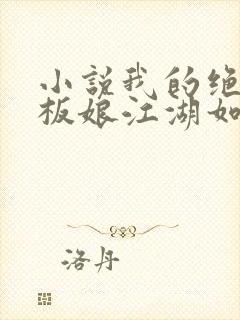 小说我的绝
板娘江湖如
洛丹